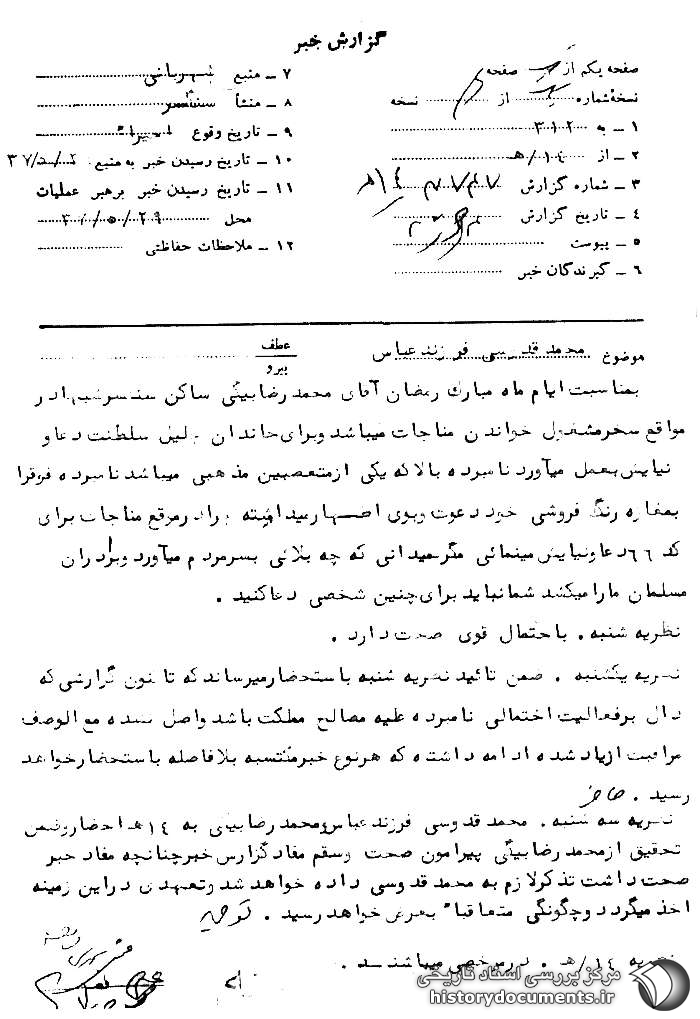 گزارش خبر
صفحه یکم از صفحه
نسخهٔ شماره از نسخه
۱ - به ۳۱۲
۲ - از ۱۴/ه
۳ - شماره گزارش
۴ - تاریخ گزارش
۵ - پیوست
۶ - گیرندگان خبر
۷ - منبع شهربانی
۸ - منشأ سنقر
۹ - تاریخ وقوع اخیراً
۱۰ - تاریخ رسیدن خبر به منبع
۱۱ - تاریخ رسیدن خبر برهبر عملیات
محل
۱۲ - ملاحظات حفاظتی
موضوع محمد قدوسی فرزند عباس
عطف
پیرو
بمناسبت ایام ماه مبارک رمضان آقای محمد رضا بیگی ساکن در
مواقع سحر مشغول خواندن مناجات میباشد و برای خاندان جلیل سلطنت دعا و
نیایش بعمل میآورد نامبرده بالا که یکی از متعصبین مذهبی میباشد نامبرده فوق را
بمغازه رنگ فروشی خود دعوت و بوی اظهار میداشته برادر موقع مناجات برای
که ۶۶ دعا و نیایش مینمائی مگر نمیدانی که چه بلائی بسر مردم میآورد و برادران
مسلمان ما را میکشد شما نباید برای چنین شخصی دعا کنید .
نظریه شنبه . باحتمال قوی صحت دارد .
نظریه یکشنبه . ضمن تائید نظریه شنبه باستحضار میرساند که تاکنون گزارشی که
دال بر فعالیت احتمالی نامبرده علیه مصالح مملکت باشد واصل نشده مع الوصف
مراقبت از یاد شده ادامه داشته که هر نوع خبر منتسبه بلافاصله باستحضار خواهد
رسید .
نظریه سه شنبه . محمد قدوسی فرزند عباس و محمد رضا بیگی به ۱۴ ه احضار و ضمن
تحقیق از محمد رضا بیگی پیرامون صحت وسقم مفاد گزارس خبر چنانچه مفاد خبر
صحت داشت تذکر لازم به محمد قدوسی داده خواهد شد و تعهدی در این زمینه
اخذ میگردد و چگونگی متعاقباً بعرض خواهد رسید .
نظریه ۱۴/ه . در مرخصی میباشند .
مرکز بررسی اسناد تاریخی
historydocuments.ir